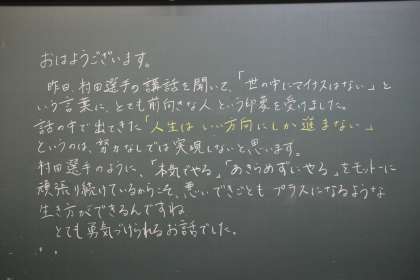 おはようございます。
昨日、村田選手の講話を聞いて、「世の中にマイナスはない」と
いう言葉に、とても前向きな人という印象を受けました。
話の中で出てきた「人生はいい方向にしか進まない」
というのは、努力なしでは実現しないと思います。
村田選手のように、「本気でやる」「あきらめずにやる」をモットーに
頑張り続けているからこそ、悪いできごともプラスになるような
生き方ができるんですね
とても勇気づけられるお話でした。